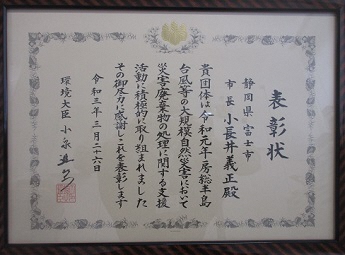 表彰状
静岡県富士市
市長 小長井義正殿
貴団体は令和元年房総半島
台風等の大規模自然災害において
災害廃棄物の処理に関する支援
活動に積極的に取り組まれました
その御尽力に感謝しこれを表彰します
令和三年三月二十六日
環境大臣 小泉進次郎